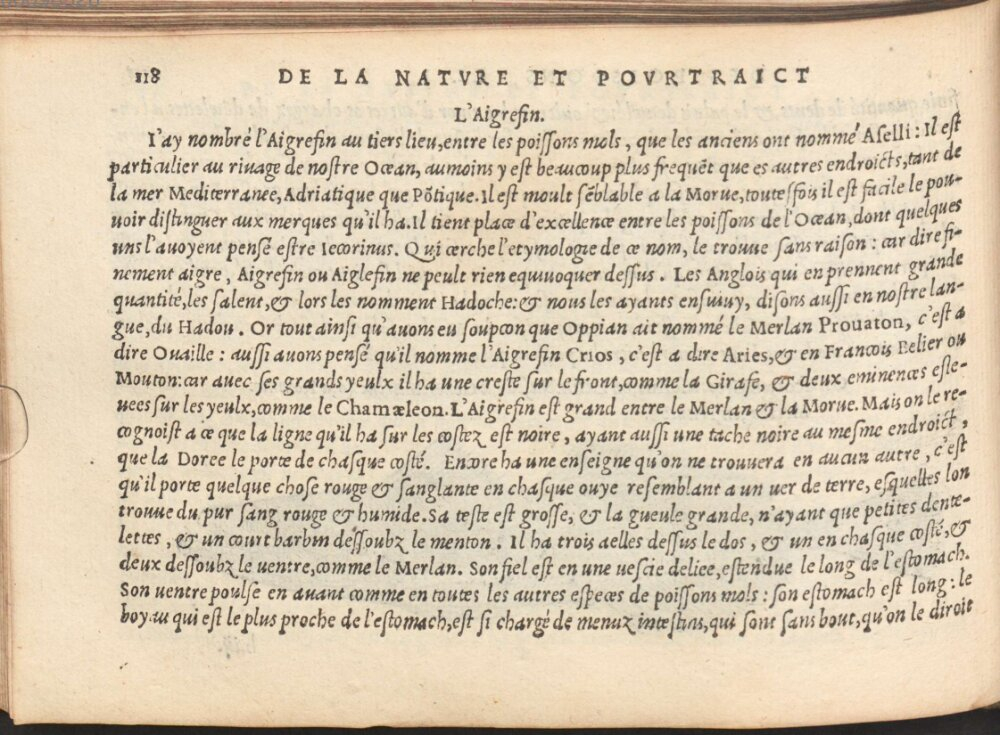 118 DE LA NATVRE ET POVRTRAICT
L'Aigrefin.
I'ay nombré l'Aigrefin au tiers lieu, entre les poissons mols, que les anciens ont nommé Aselli: Il est
particulier au riuage de nostre Ocean, aumoins y est beaucoup plus frequẽt que es autres endroicts, tant de
la mer Mediterranee, Adriatique que Põtique. Il est moult sẽblable a la Morue, toutesfois il est facile le pou-
uoir distinguer aux merques qu'il ha. Il tient place d'excellence entre les poissons de l'Ocean, dont quelques
uns l'auoyent pensé estre Iecorinus. Qui cerche l'etymologie de ce nom, le trouue sans raison: car dire fi-
nement aigre, Aigrefin ou Aiglefin ne peult rien equiuoquer dessus. Les Anglois qui en prennent grande
quantité, les salent, & lors les nomment Hadoche: & nous les ayants ensuiuy, disons aussi en nostre lan-
gue, du Hadou. Or tout ainsi qu'auons eu soupcon que Oppian ait nommé le Merlan Prouaton, c'est a
dire Ouaille: aussi auons pensé qu'il nomme l'Aigrefin Crios, c'est a dire Aries, & en Francois Belier ou
Mouton: car auec ses grands yeulx il ha une creste sur le front, comme la Girafe, & deux eminences esle-
uees sur les yeulx, comme le Chamæleon. L'Aigrefin est grand entre le Merlan & la Morue. Mais on le re-
cognoist a ce que la ligne qu'il ha sur les costez est noire, ayant aussi une tache noire au mesme endroict,
que la Doree le porte de chasque costé. Encore ha une enseigne qu'on ne trouuera en aucun autre, c'est
qu'il porte quelque chose rouge & sanglante en chasque ouye resemblant a un uer de terre, esquelles lon
trouue du pur sang rouge & humide. Sa teste est grosse, & la gueule grande, n'ayant que petites dente-
lettes, & un court barbin dessoubz le menton. Il ha trois aelles dessus le dos, & un en chasque costé, &
deux dessoubz le uentre, comme le Merlan. Son fiel est en une uescie deliee, estendue le long de l'estomach.
Son uentre poulse en auant comme en toutes les autres especes de poissons mols: son estomach est long: le
boyau qui est le plus proche de l'estomach, est si chargé de menuz intestins, qui sont sans bout, qu'on le diroit